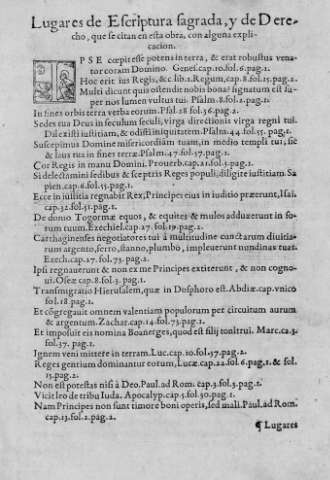 Lugares de Escriptura sagrada, y de Dere-
cho, que se citan en esta obra, con alguna expli-
cacion.
IPSE cœpit esse potens in terra, & erat robustus vena-
tor coram Domino. Genes. cap. 10. fol. 6. pag. 1.
Hoc erit ius Regis, &c. lib. 1. Regum, cap. 8. fol. 15. pag. 2.
Multi dicunt quis ostendit nobis bona? signatum est su-
per nos lumen vultus tui. Psalm. 8. fol. 2. pag. 1.
In fines orbis terræ verba eorum. Psal. 18. fol. 36. pag. 2.
Sedes tua Deus in seculum seculi, virga directionis virga regni tui.
Dilexisti iustitiam, & odisti iniquitatem. Psalm. 44. fol. 55. pag. 1.
Suscepimus Domine misericordiam tuam, in medio templi tui, sic
& laus tua in fines terræ. Psalm. 47. fol. 37. pag. 1.
Cor Regis in manu Domini. Prouerb. cap. 21. fol. 3. pag. 1.
Si delectamini sedibus & sceptris Reges populi, diligite iustitiam. Sa
pien. cap. 6. fol. 55. pag. 1.
Ecce in iustitia regnabit Rex, Principes eius in iuditio præerunt, Isai.
cap. 32. fol. 51. pag. 1.
De domo Togormæ equos, & equites & mulos adduxerunt in fo-
rum tuum. Ezechiel. cap. 27. fol. 19. pag. 2.
Carthaginenses negotiatores tui à multitudine cunctarum diuitia-
rum argento, ferro, stanno, plumbo, impleuerunt nundinas tuas.
Ezech. cap. 27. fol. 73. pag. 2.
Ipsi regnauerunt & non ex me Principes extiterunt, & non cogno-
ui. Oseæ cap. 8. fol. 3. pag. 1.
Transmigratio Hierusalem, quæ in Bosphoro est. Abdiæ. cap. vnico
fol. 18 pag. 1.
Et cõgregauit omnem valentiam populorum per circuitum aurum
& argentum. Zachar. cap. 14. fol. 73. pag. 1.
Et imposuit eis nomina Boanerges, quod est filij tonitrui. Marc. ca. 3.
fol. 37. pag. 1.
Ignem veni mittere in terram. Luc. cap. 10. fol. 37. pag. 2.
Reges gentium dominantur eorum, Lucæ. cap. 22. fol. 6. pag. 1. & fol.
15. pag. 2.
Non est potestas nisi à Deo. Paul. ad Rom. cap. 3. fol. 3. pag. 1.
Vicit leo de tribu Iuda. Apocalyp. cap. 5. fol. 30. pag. 1.
Nam Principes non sunt timore boni operis, sed mali. Paul. ad Rom.
cap. 13. fol. 2. pag. 2.
¶ Lugares